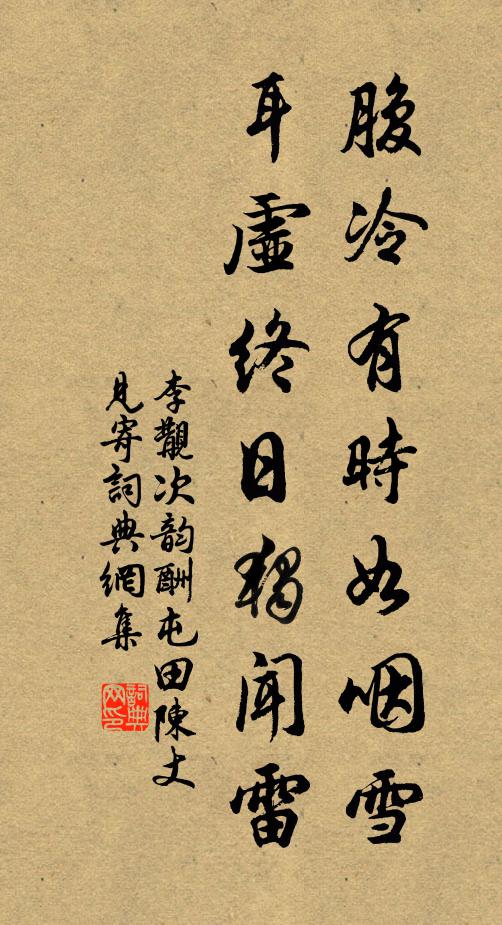 腹冷有時如咽雪
耳虛終日獨聞雷
李觀次韵酬屯田陳丈
見寄詞典網集
詞典
网印